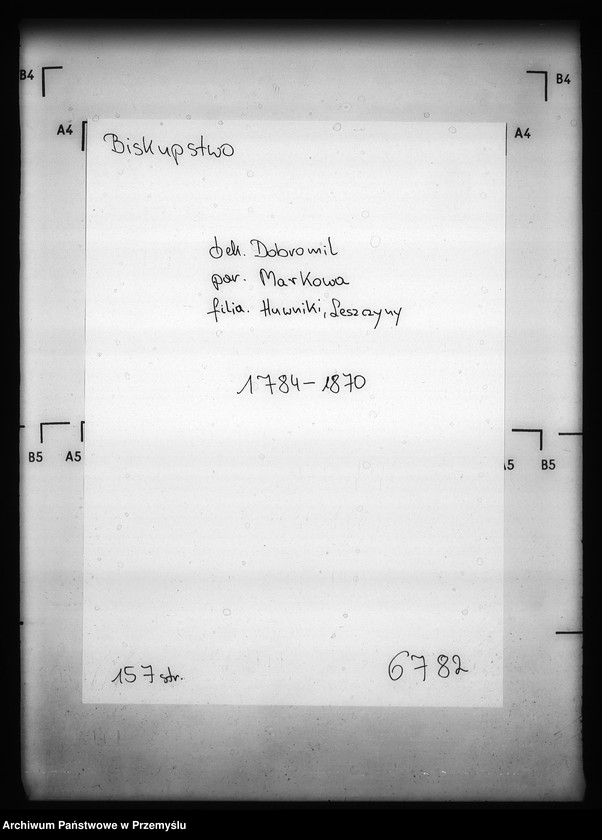 B4
B4
A4
A4
Biskupstwo
dek. Dobromil
par. Markowa
filia. Huwniki, Leszczyny
1784-1870
B5 A5
A5 B5
157 str.
6782
Archiwum Państwowe w Przemyślu